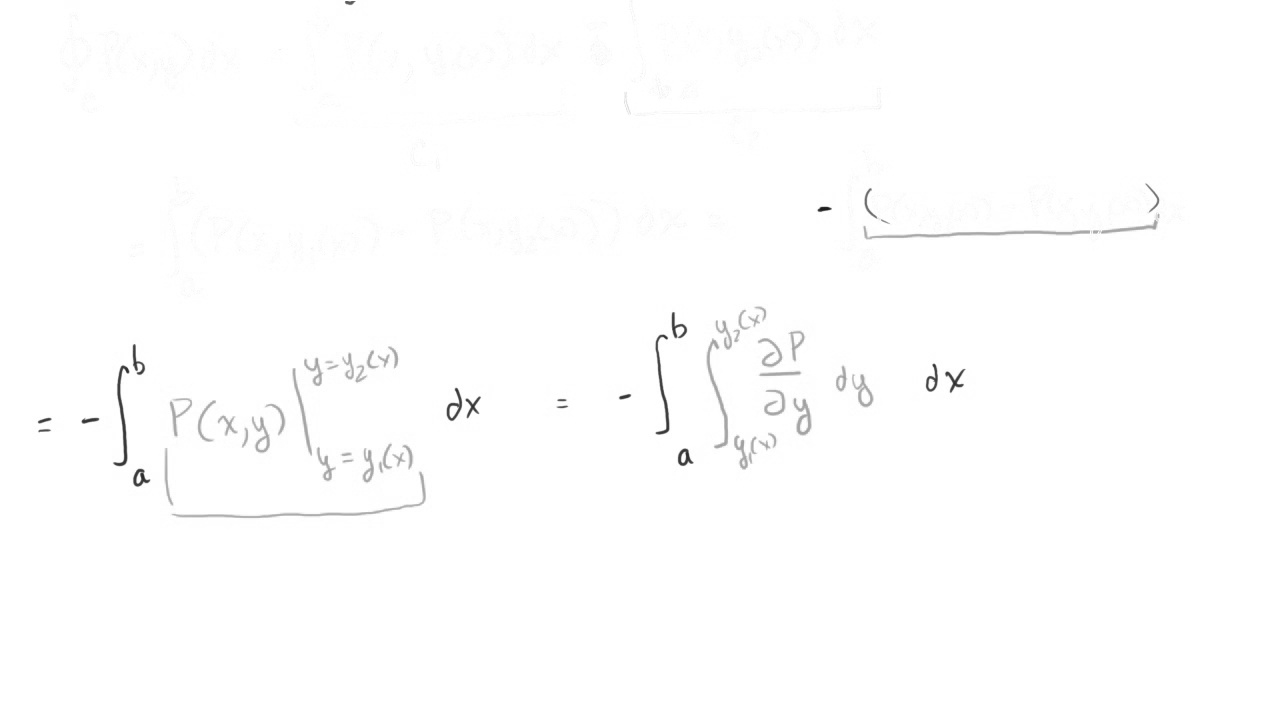 ∮_C P(x,y) dx = ∫ P(x, y₁(x)) dx + ∫ P(x, y₂(x)) dx
C₁ C₂
= ∫_a^b (P(x, y₁(x)) - P(x, y₂(x))) dx = - ∫_a^b ( P(x, y₂(x)) - P(x, y₁(x)) ) dx
= - ∫_a^b P(x,y) |_{y = y₁(x)}^{y = y₂(x)} dx = - ∫_a^b ∫_{y₁(x)}^{y₂(x)} ∂P/∂y dy dx